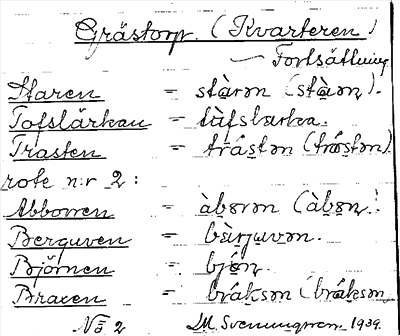 Grästorp. (Kvarteren)
— Fortsättning
Staren = stàrən (stàən).
Tofslärkan = tàfslarka.
Trasten = trástən (tròstən)
rote n:r 2:
Abborren = àbørən (àbøn.)
Berguven = bàrjuvən.
Björnen = bjón.
Braxen = bráksən (bráksən
Nä 2 M. Svenungson. 1939.